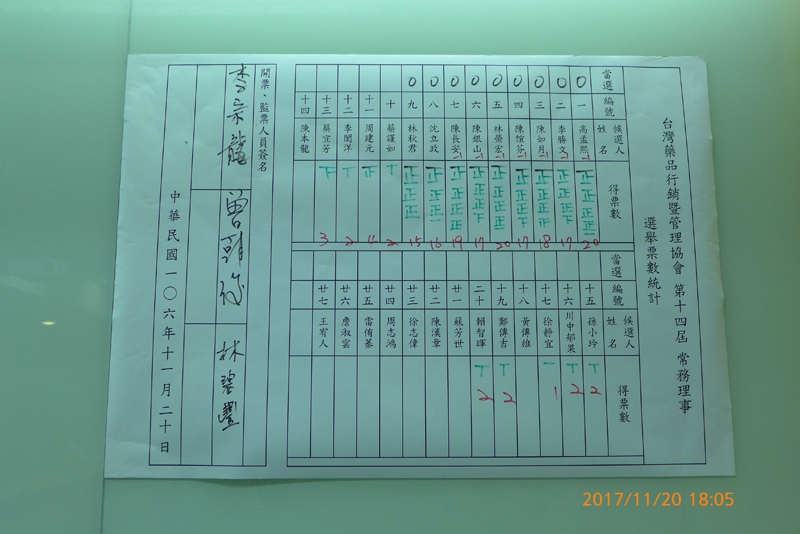 台灣藥品行銷暨管理協會 第十四屆 常務理事
選舉票數統計
當選 編號 候選人姓名 得票數
0 一 高孟熙 20
0 二 李勝文 17
0 三 陳如月 18
0 四 陳愷芬 17
0 五 林榮宏 20
0 六 陳銀山 17
0 七 陳長安 19
0 八 沈立政 16
0 九 林秋君 15
十 蔡謹如 2
十一 周建元 4
十二 李開洋 2
十三 蔡宜芳 3
十四 陳本龍
當選 編號 候選人姓名 得票數
十五 孫小玲 2
十六 川中郁果 2
十七 徐靜宜 1
十八 黃傳雄
十九 鄭傳吉 2
二十 賴智暉 2
廿一 蘇芳世
廿二 陳漢章
廿三 徐志偉
廿四 周志鴻
廿五 雷侑蓁
廿六 詹淑雲
廿七 王宥人
開票、監票人員簽名
李宗龍
林碧豐
中華民國一〇六年十一月二十日
2017/11/20 18:05